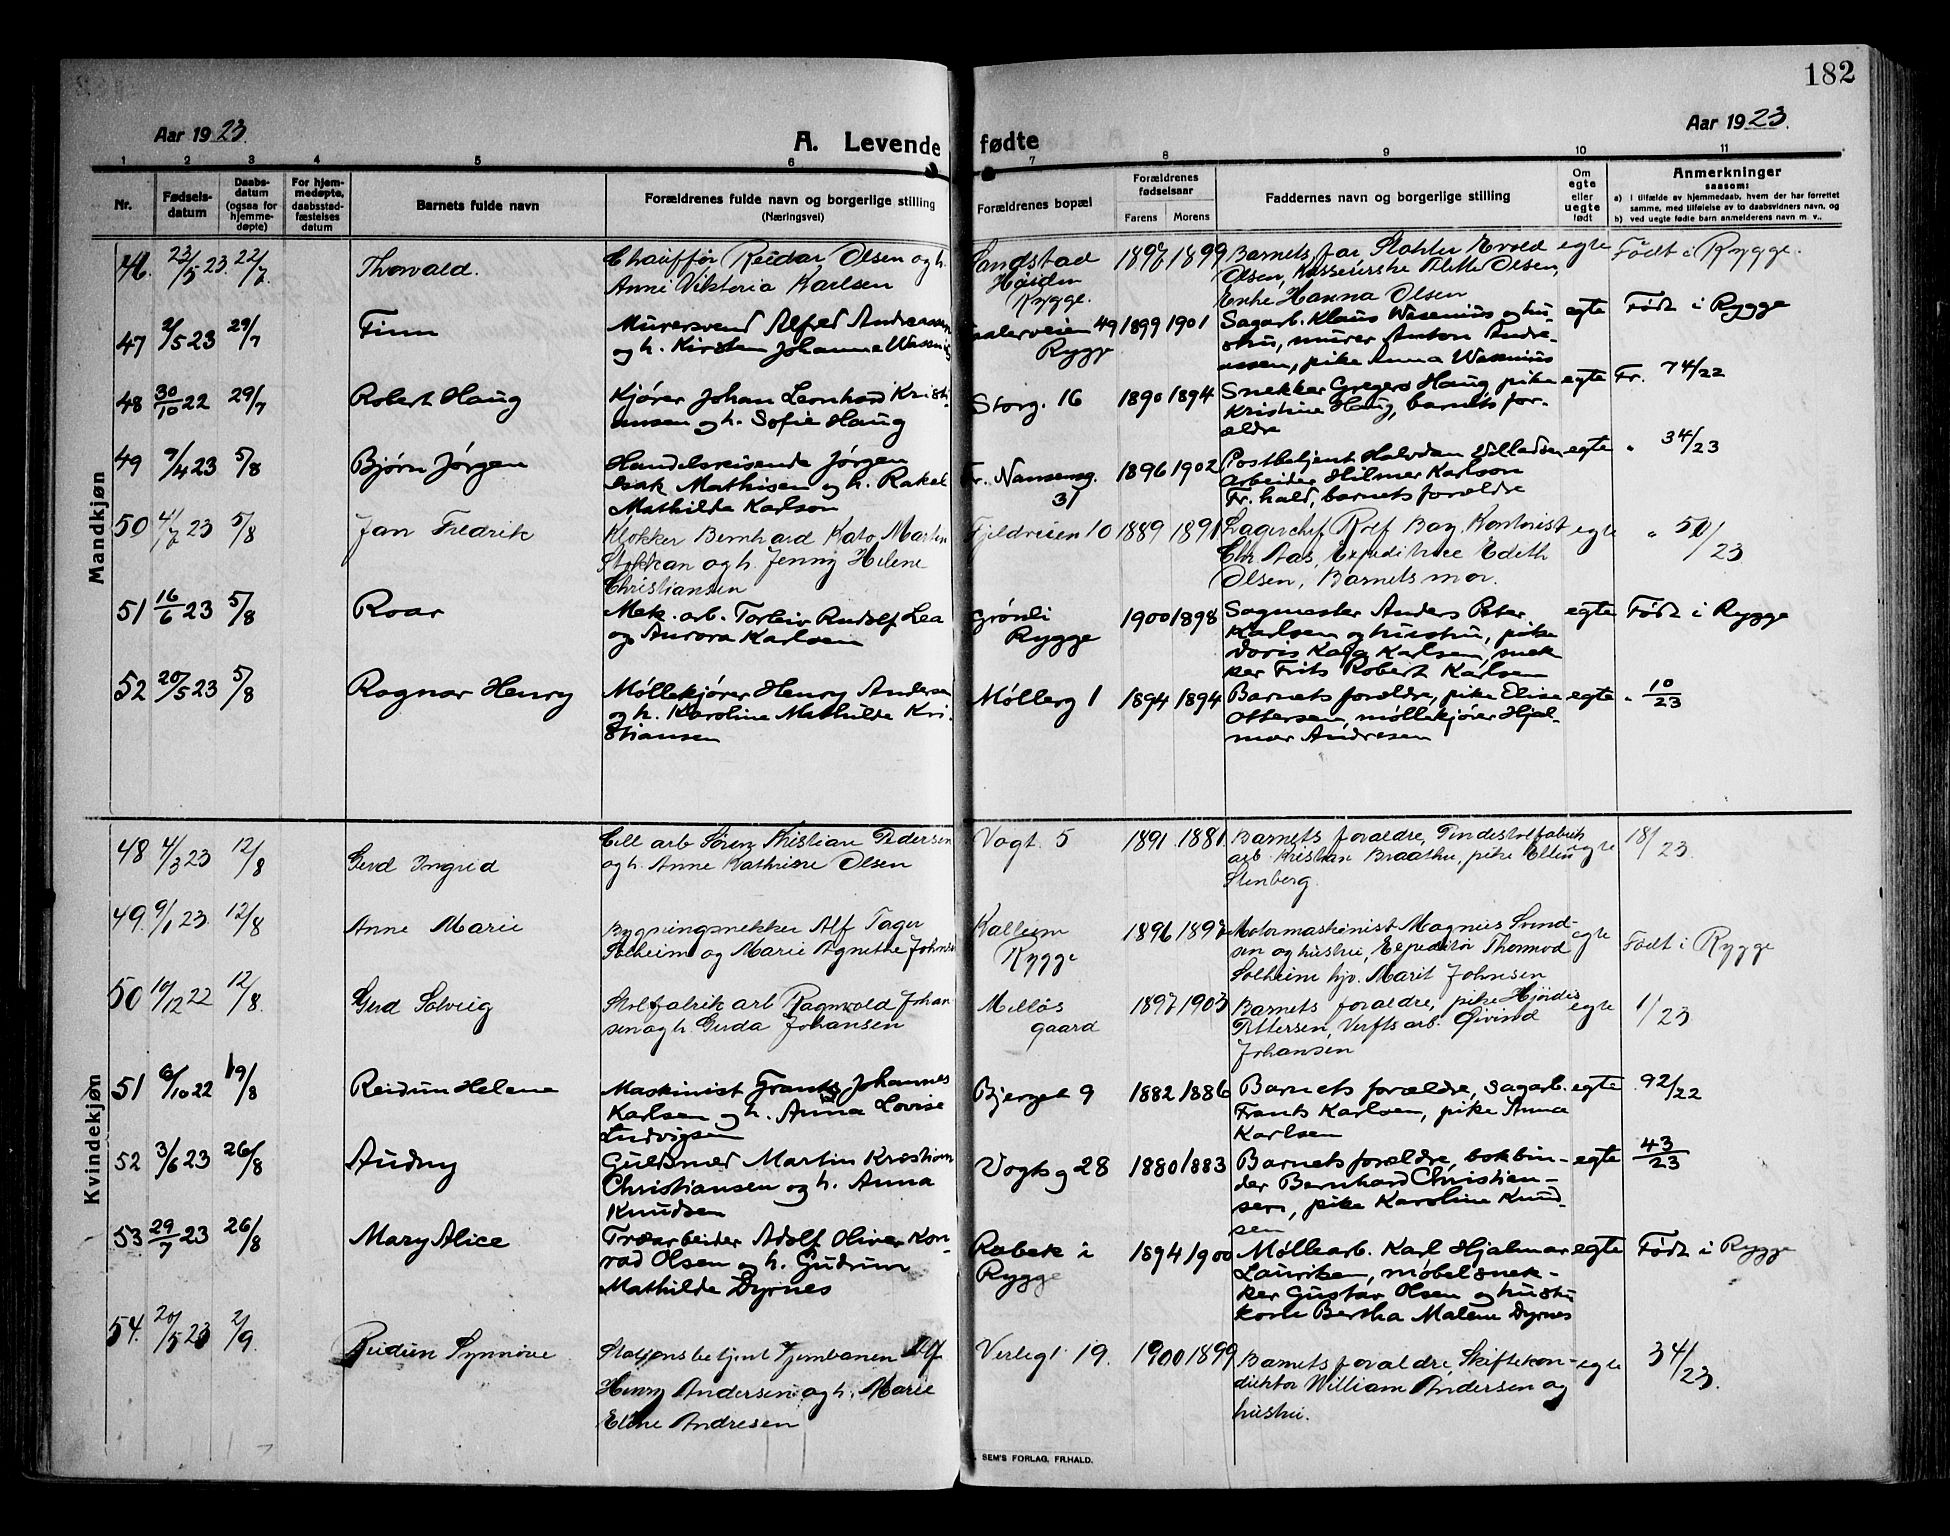 182
Aar 1923.
A. Levende fødte
Aar 1923.
1 2 3 4 5 6 7 8 9 10 11
Nr.
Fødsels-
datum
Daabs-
datum
(ogsaa for
hjemme-
døpte)
For hjem-
medøpte,
daabsstad-
fæstelses
datum
Barnets fulde navn
Forældrenes fulde navn og borgerlige stilling
(Næringsvei)
Forældrenes bopæl
Forældrenes
fødselsaar
Farens Morens
Faddernes navn og borgerlige stilling
Om
egte
eller
uegte
født
Anmerkninger
saasom:
a) i tilfælde av hjemmedaab, hvem der har forrettet
samme, med tilføielse av to daabsvidners navn, og
b) ved uegte fødte barn anmelderens navn m. v.,
Mandkjøn
46. 23/5 23. 22/7. Thorvald.
Chauffør Reidar Olsen og h.
Anne Viktoria Karlsen
Sandstad
Høiden
Rygge.
1897 1899
Barnets far, Evald
Olsen, Olsen,
Enke Hanna Olsen
egte
Født i Rygge.
47 2/5 23 29/7 Finn
Murersvend Alfred Andreassen
og h. Kirsten Johanne Wasenius
49
Rygge
1899 1901
Sagarb. Klaus Wasenius og hu-
stru, murer Anton Andre-
assen, pike Anna Wasenius
egte
Født i Rygge
48 30/10 22 29/7 Robert Haug
Kjører Johan Leonhard Kristi-
ansen og h. Sofie Haug
Storg. 16
1890 1894
Snekker Gregers Haug, pike
Kristine Haug, barnets for-
ældre
egte
Fr. 74/22
49 9/4 23 5/8 Bjørn Jørgen
Handelsreisende Jørgen
Isak Mathisen og h. Rakel
Mathilde Karlson
Fr. Nanseng.
31
1896 1902
Postbetjent Halvdan Villadsen
arbeider Hilmer Karlson
Fr.hald, barnets forældre
egte
" 34/23
50 4/7 23 5/8 Jan Fredrik
Klokker Bernhard Kato Martin
Stokkan og h. Jenny Helene
Christiansen
Fjeldveien 10
1889 1891
Lagerchef Rolf Bay, Kontorist
Chr. Aas, Expeditrice Edith
Olsen, Barnets mor.
egte
51 16/6 23 5/8 Roar
Mek. arb. Torleiv Rudolf Lea
og Aurora Karlsen
Grønli
Rygge
1900 1898
Sagmester Anders Peter
Karlsen og hustru, pike
Doris Karlsen, snek
ker Frits Robert Karlsen
egte
Født i Rygge
52 20/5 23 5/8 Ragnar Henry
Møllekjører Henry Andersen
og h. Karoline Mathilde Kri-
stiansen
Møllerg 1
1894 1894
Barnets forældre, pike Elise
Ottersen, møllekjører Hjal-
mar Andresen
egte
" 10/23
Kvindekjøn
48 4/3 23 12/8 Gerd Ingrid
Cell arb Søren Kristian Pedersen
og h. Anne Kathrine Olsen
Vogt. 5
1891 1881
Barnets forældre, Pindestolfabrik
arb. Kristian Braathu, pike Ellen
Stenberg.
egte
18/23.
49. 9/1 23 12/8 Anne Marie
Bygningsnekker Alf Tager
Solheim og Marie Agnethe Johnsen
Kallum
Rygge
1896 1897
Motormaskinist Magnus Svend-
sen og hustru, Expeditør Thormod
Solheim hjv. Marit Johnsen
egte
Født i Rygge
50 10/12 22 12/8. Gerd Solveig
Stolfabrik arb Ragnvald Johan-
sen og h. Gerda Johansen
Melløs
gaard
1897 1903
Barnets forældre, pike Hjørdis
Pettersen, Verfts arb. Øivind
Johansen
egte
1/23
51 6/10 22 19/8 Reidun Helene
Maskinist Frants Johannes
Karlsen og h. Anna Lovise
Ludvigsen
Bjerget 9
1882 1886
Barnets forældre, sagarb.
Frants Karlsen, pike Anna
Karlsen
egte
92/22
52 3/6 23 26/8 Audny
Guldsmed Martin Kristian
Christiansen og h. Anna
Knudsen
Vogtsg 28
1880 1883
Barnets forældre, bokbin-
der Bernhard Christian-
sen, pike Karoline Knud-
sen
egte
43/23
53. 29/7 23 26/8 Mary Alice
Træarbeider Adolf Oliver Kon-
rad Olsen og h. Gudrun
Mathilde Dyrnes
Rabek i
Rygge
1894 1900
Møllearb. Karl Hjalmar
Lauritsen, møbelsnek-
ker Gustav Olsen og hustru
kone Bertha Malene Dyrnes
egte
Født i Rygge
54. 20/5 23 2/9. Reidun Synnøve
Stationsbetjent Alf
Henry Andersen og h. Marie
Eline Andresen
Verlegt 19.
1900 1899
Barnets forældre, Skiftekon-
duktør William Andersen og
hustru.
egte
34/23.
SEM'S FORLAG, FR.HALD.